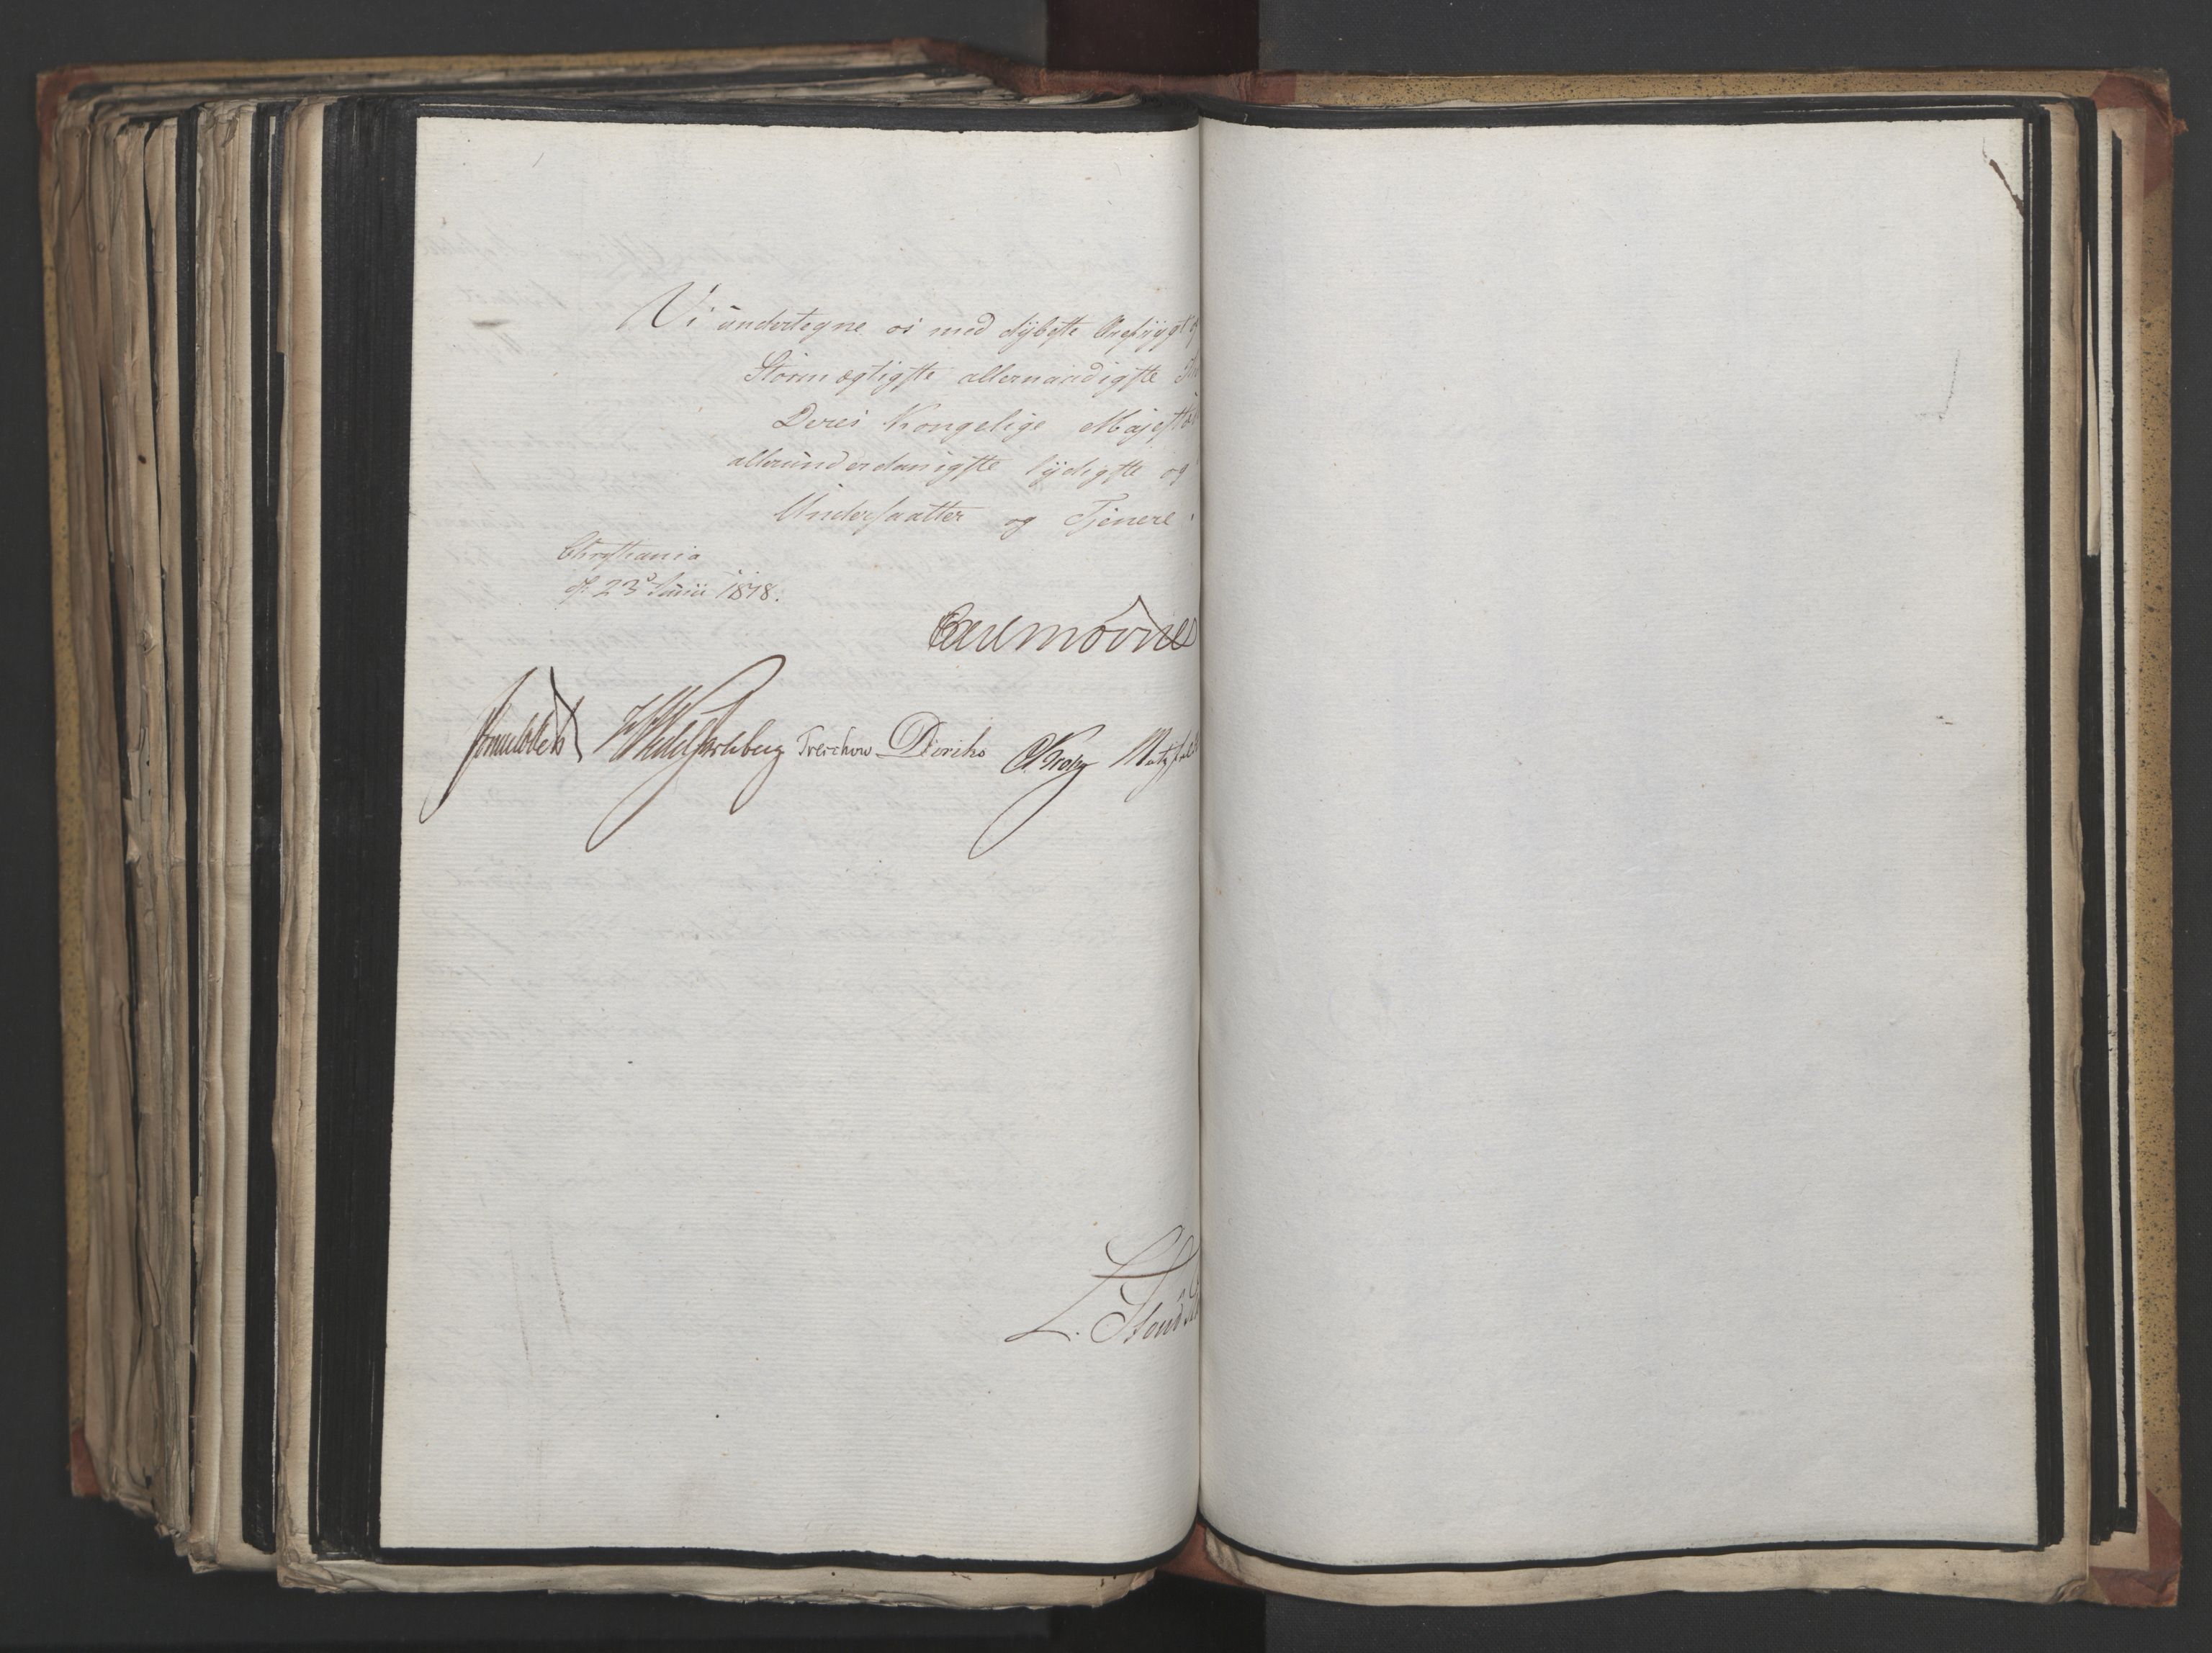 Vi undertegne os med dybeste Ærefrygt
Stormægtigste allernaadigste
Deres Kongelige Majestæt
allerunderdanigste lydigste og
Undersaatter og Tjenere
Christiania
d. 23d Junii 1818.
Carl Mörner
Sommerhielm Wedel Jarlsberg Treschow Diriks Krohg Motzfeldt
L.